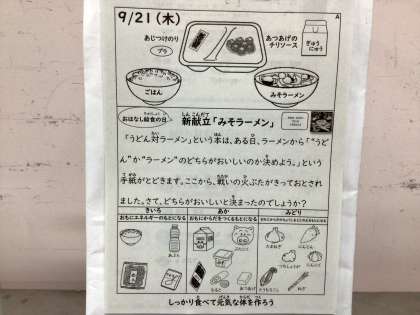 9/21(木)
A
あじつけのり
プラ
あつあげの
チリソース
ぎゅう
にゅう
ごはん
みそラーメン
おはなし給食の日
新献立「みそラーメン」
「うどん対ラーメン」という本は、ある日、ラーメンから「“うど
ん”か“ラーメン”のどちらがおいしいのか決めよう。」という
手紙がとどきます。ここから、戦いの火ぶたがきっておとされ
ました。さて、どちらがおいしいと決まったのでしょうか?
きいろ
あか
みどり
おもにエネルギーのもとになる
おもにからだをつくるもとになる
たまねぎ
にんじん
にんにく
しょうが
ねぎ
あつあげ
ぶたにく
しっかり食べて元気な体を作ろう